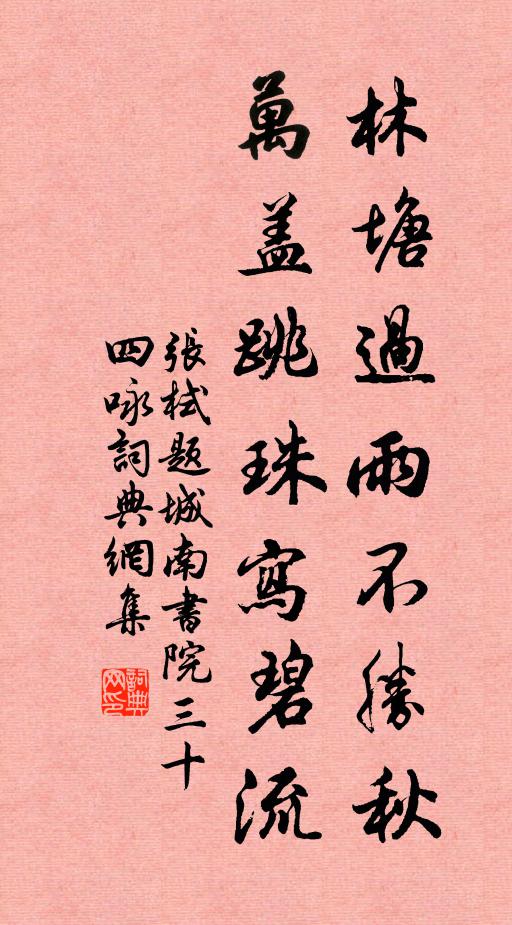 林塘過雨不勝秋
萬盖跳珠寫碧流
張栻题城南書院三十
四咏詞典網集
詞典网印